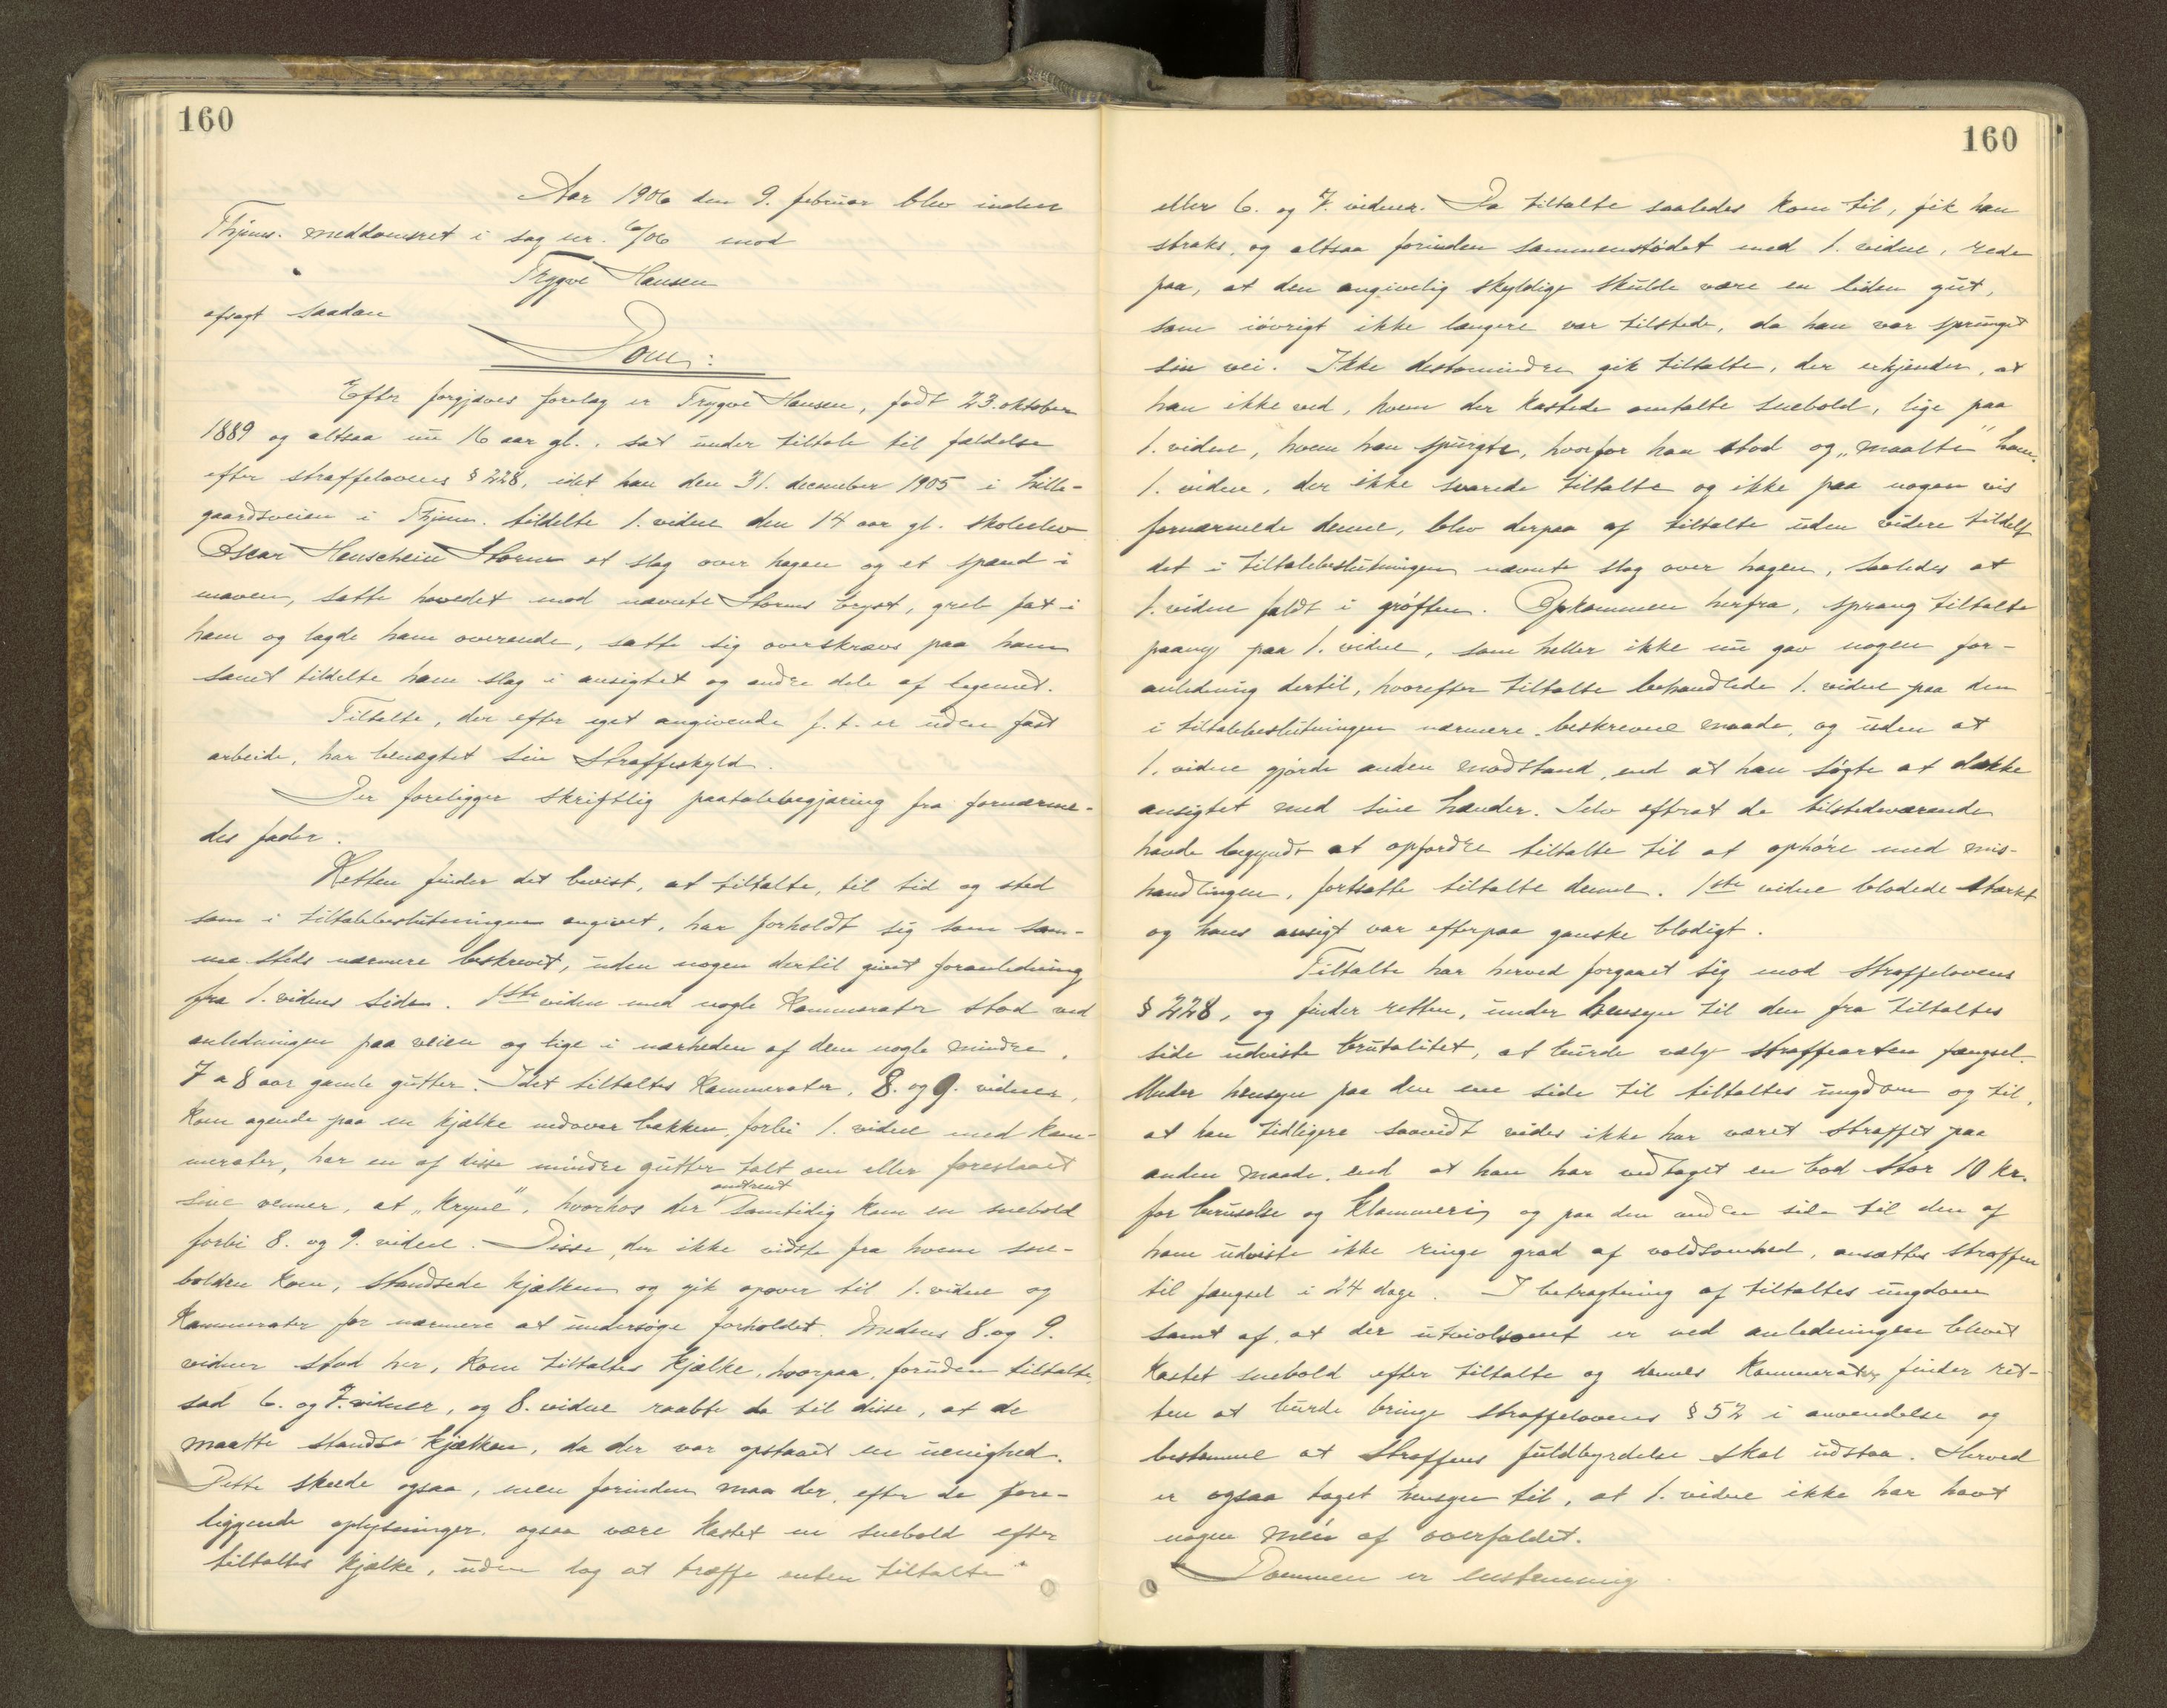 160
Aar 1906 den 9. februar blev inden
Thjems. meddomsret i sag nr. 6/06 mod
Trygve Hansen
afsagt saadan
Dom:
Efter forgjæves forelæg er Trygve Hansen, født 23. oktober
1889 og altsaa nu 16 aar gl., sat under tiltale til fældelse
efter straffelovens § 228, idet han den 31. december 1905 i Lille-
gaardsveien i Thjem. tildelte 1. vidne den 14 aar gl. skoleelev
Oscar Henschein Storm et slag over hagen og et spænd i
maven, satte hovedet mod nævnte Storms bryst, greb fat i
ham og lagde ham overende, satte sig overskrævs paa ham
samt tildelte ham slag i ansigtet og andre dele af legemet.
Tiltalte, der efter eget angivende f. t. er uden fast
arbeide, har benægtet sin Straffeskyld.
Der foreligger skriftlig paatalebegjæring fra fornærme-
des fader.
Retten finder det bevist, at tiltalte, til tid og sted
som i tiltalebeslutningen angivet, har forholdt sig som sam-
me steds nærmere beskrevet, uden nogen dertil givet foranledning
fra 1. vidnes side. 1ste vidne med nogle Kammerater stod ved
anledningen paa veien og lige i nærheden af dem nogle mindre,
7 a 8 aar gamle gutter. Idet tiltaltes Kammerater, 8. og 9. vidner,
kom agende paa en kjælke nedover bakken, forbi 1. vidne med kam-
merater, har en af disse mindre gutter talt om eller foreslaaet
sine venner, at „kryne“, hvorhos der omtrent samtidig kom en snebold
forbi 8. og 9. vidne. Disse, der ikke vidste fra hvem sne-
bolden kom, standsede kjælken og gik opover til 1. vidne og
Kammerater for nærmere at undersøge forholdet. Medens 8. og 9.
vidner stod her, kom tiltaltes kjælke, hvorpaa, foruden tiltalte,
sad 6. og 7. vidner, og 8. vidne raabte da til disse, at de
maatte standse kjælken, da der var opstaaet en uenighed.
Dette skede ogsaa, men forinden maa der, efter de fore-
liggende oplysninger, ogsaa være kastet en snebold efter
tiltaltes kjælke, uden dog at træffe enten tiltalte
160
eller 6. og 7. vidner. Da tiltalte saaledes kom til, fik han
straks, og altsaa forinden sammenstødet med 1. vidne, rede
paa, at den angivelig skyldige skulde være en liden gut,
som iøvrigt ikke længere var tilstede, da han var sprunget
sin vei. Ikke destomindre gik tiltalte, der erkjender, at
han ikke ved, hvem der kastede omtalte snebold, lige paa
1. vidne, hvem han spurgte, hvorfor han stod og „maalte“ ham.
1. vidne, der ikke svarede tiltalte og ikke paa nogen vis
fornærmede denne, blev derpaa af tiltalte uden videre tildelt
det i tiltalebeslutningen nævnte slag over hagen, saaledes at
1. vidne faldt i grøften. Opkommen herfra, sprang tiltalte
paany paa 1. vidne, som heller ikke nu gav nogen for-
anledning dertil, hvorefter tiltalte behandlede 1. vidne paa den
i tiltalebeslutningen nærmere beskrevne maade, og uden at
1. vidne gjorde anden modstand, end at han søgte at dække
ansigtet med sine hænder. Selv efterat de tilstedeværende
havde begyndt at opfordre tiltalte til at ophøre med mis-
handlingen, fortsatte tiltalte denne. 1ste vidne blødede stærkt
og hans ansigt var efterpaa ganske blodigt.
Tiltalte har herved forgaaet sig mod Straffelovens
§ 228, og finder retten, under hensyn til den fra tiltaltes
side udviste brutalitet, at burde vælge straffearten fængsel.
Under hensyn paa den ene side til tiltaltes ungdom og til,
at han tidligere saavidt vides ikke har været straffet paa
anden maade, end at han har vedtaget en bod stor 10 kr.
for beruselse og klammeri og paa den anden side til den af
ham udviste ikke ringe grad af voldsomhed, ansættes straffen
til fængsel i 24 dage. I betragtning af tiltaltes ungdom
samt af, at der utvivlsomt er ved anledningen blevet
kastet snebold efter tiltalte og dennes Kammerater, finder ret-
ten at burde bringe straffelovens § 52 i anvendelse og
bestemme at Straffens fuldbyrdelse skal udstaa. Herved
er ogsaa taget hensyn til, at 1. vidne ikke har havt
nogen mén af overfaldet.
Dommen er enstemmig.